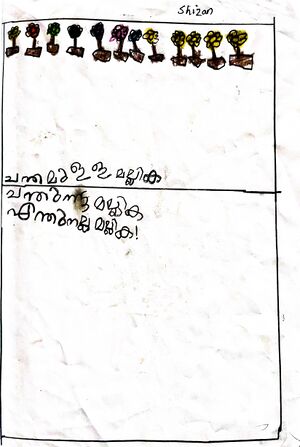 Shizan
ചന്തമുള്ള മല്ലിക
മല്ലിക
എന്തുനല്ല മല്ലിക!